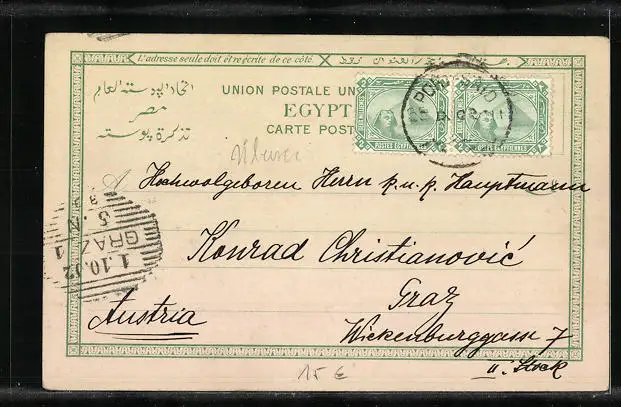 L'adresse seule doit être écrite de ce côté.
اتحاد البوسته العام
مصر
تذكرة بوسته
UNION POSTALE UN
EGYPT
CARTE POST
POSTES EGYPTIENNES
POSTES EGYPTIENNES
PORT SAID
A Hochwolgeboren Herrn k.u.k. Hauptmann
Konrad Christianović
Graz
Austria
Wickenburggasse 7
II. Stock
GRAZ
1.10.02
5.N
15 €